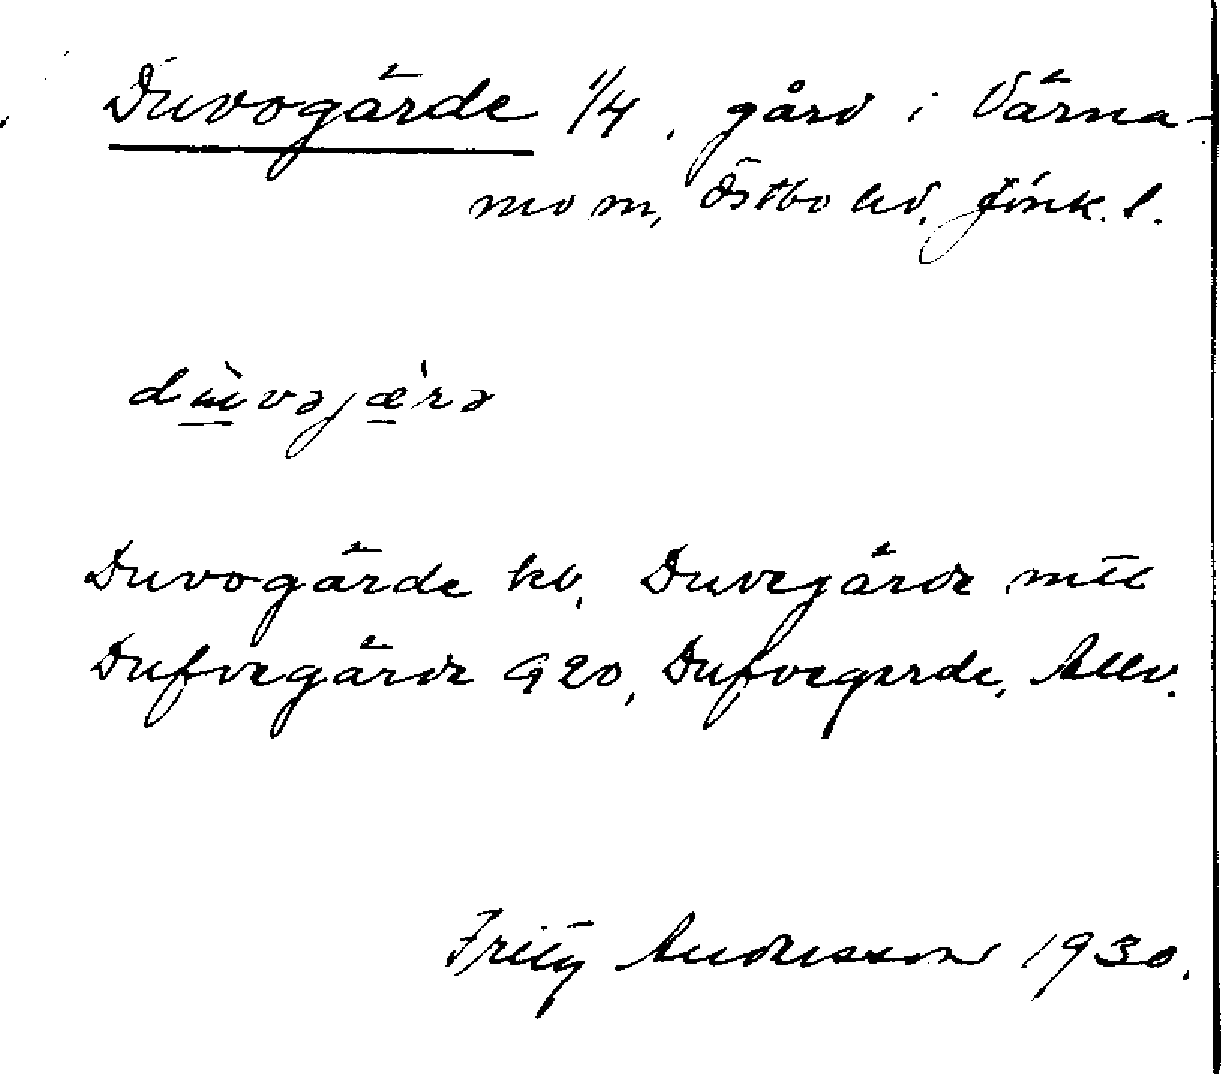 Duvogärde 1/4. gård i Värna-
mo m, Östbo hd. Jönk. l.
dɯ̀vəjæ̀rə
Duvogärde kb, Duvegärde mtl
Dufvegärde 920, Dufvegerde, Allv.
Fritz Andersson 1930.